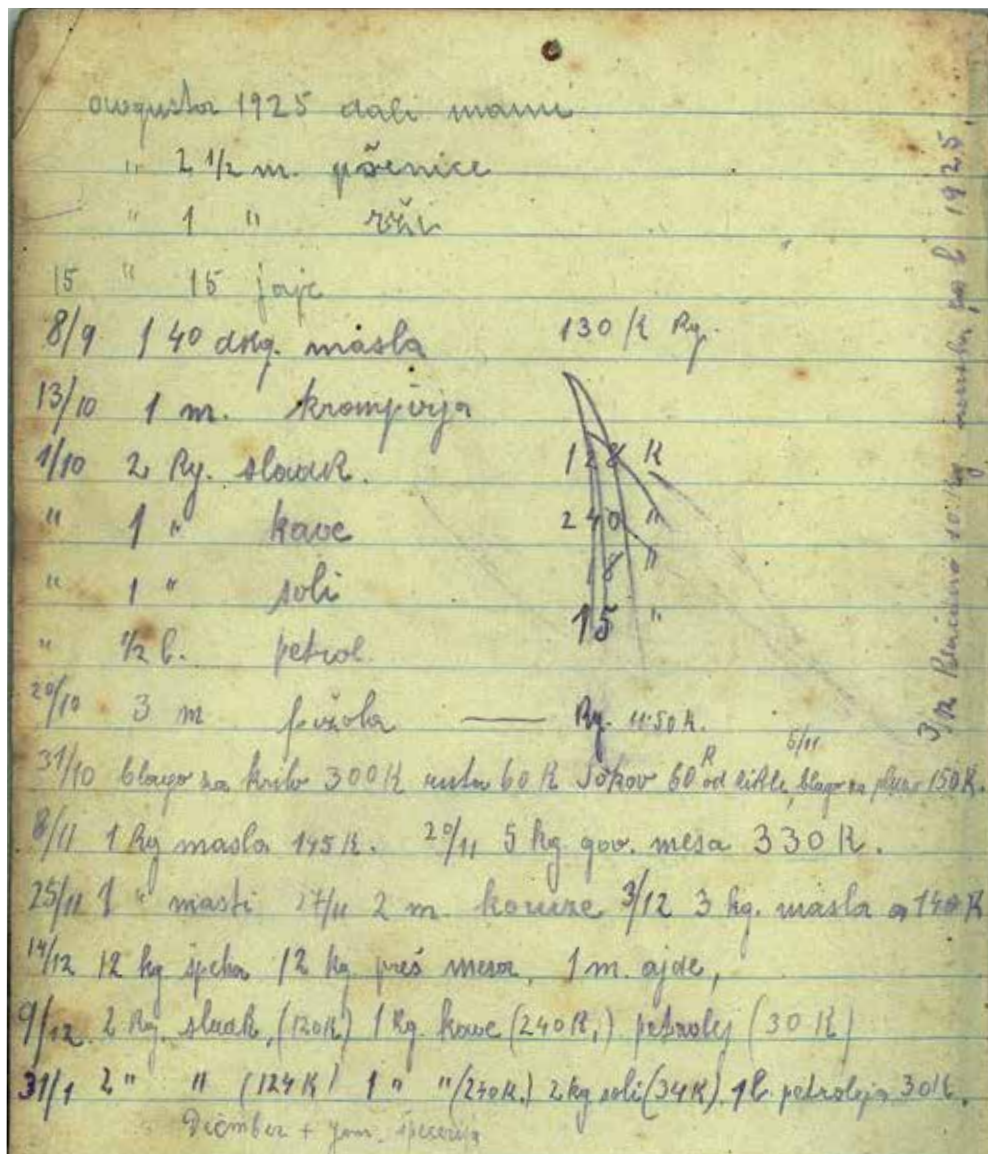 avgusta 1925 dali mami
" 2 1/2 m. pšenice
" 1 " rži
15 " 15 jajc
8/9 1 40 dkg. masla 130 K Kg.
13/10 1 m. krompirja
1/10 2 Kg. sladk. 128 K
" 1 " kave 240 "
" 1 " soli 18 "
" 1/2 l. petrol. 15 "
20/10 3 m fižola — Kg. 11·50 K.
31/10 blago za krilo 300 K 60 K 60 K od 5/11 blago za 150 K.
8/11 1 Kg masla 145 K. 20/11 5 kg gov. mesa 330 K.
25/11 1 " masti 27/11 2 m. koruze 3/12 3 kg. masla a 140 K
14/12 12 kg špeha 12 kg. preš mesa, 1 m. ajde,
9/12. 2 Kg. sladk, (120 K) 1 Kg. kave (240 K,) petrolej (30 K)
31/1 2 " " (124 K) 1 " " (240 K.) 2 kg soli (34 K). 1 l. petroleja 30 K.
Decmber + jan. špecerija
10 Kg. 1925